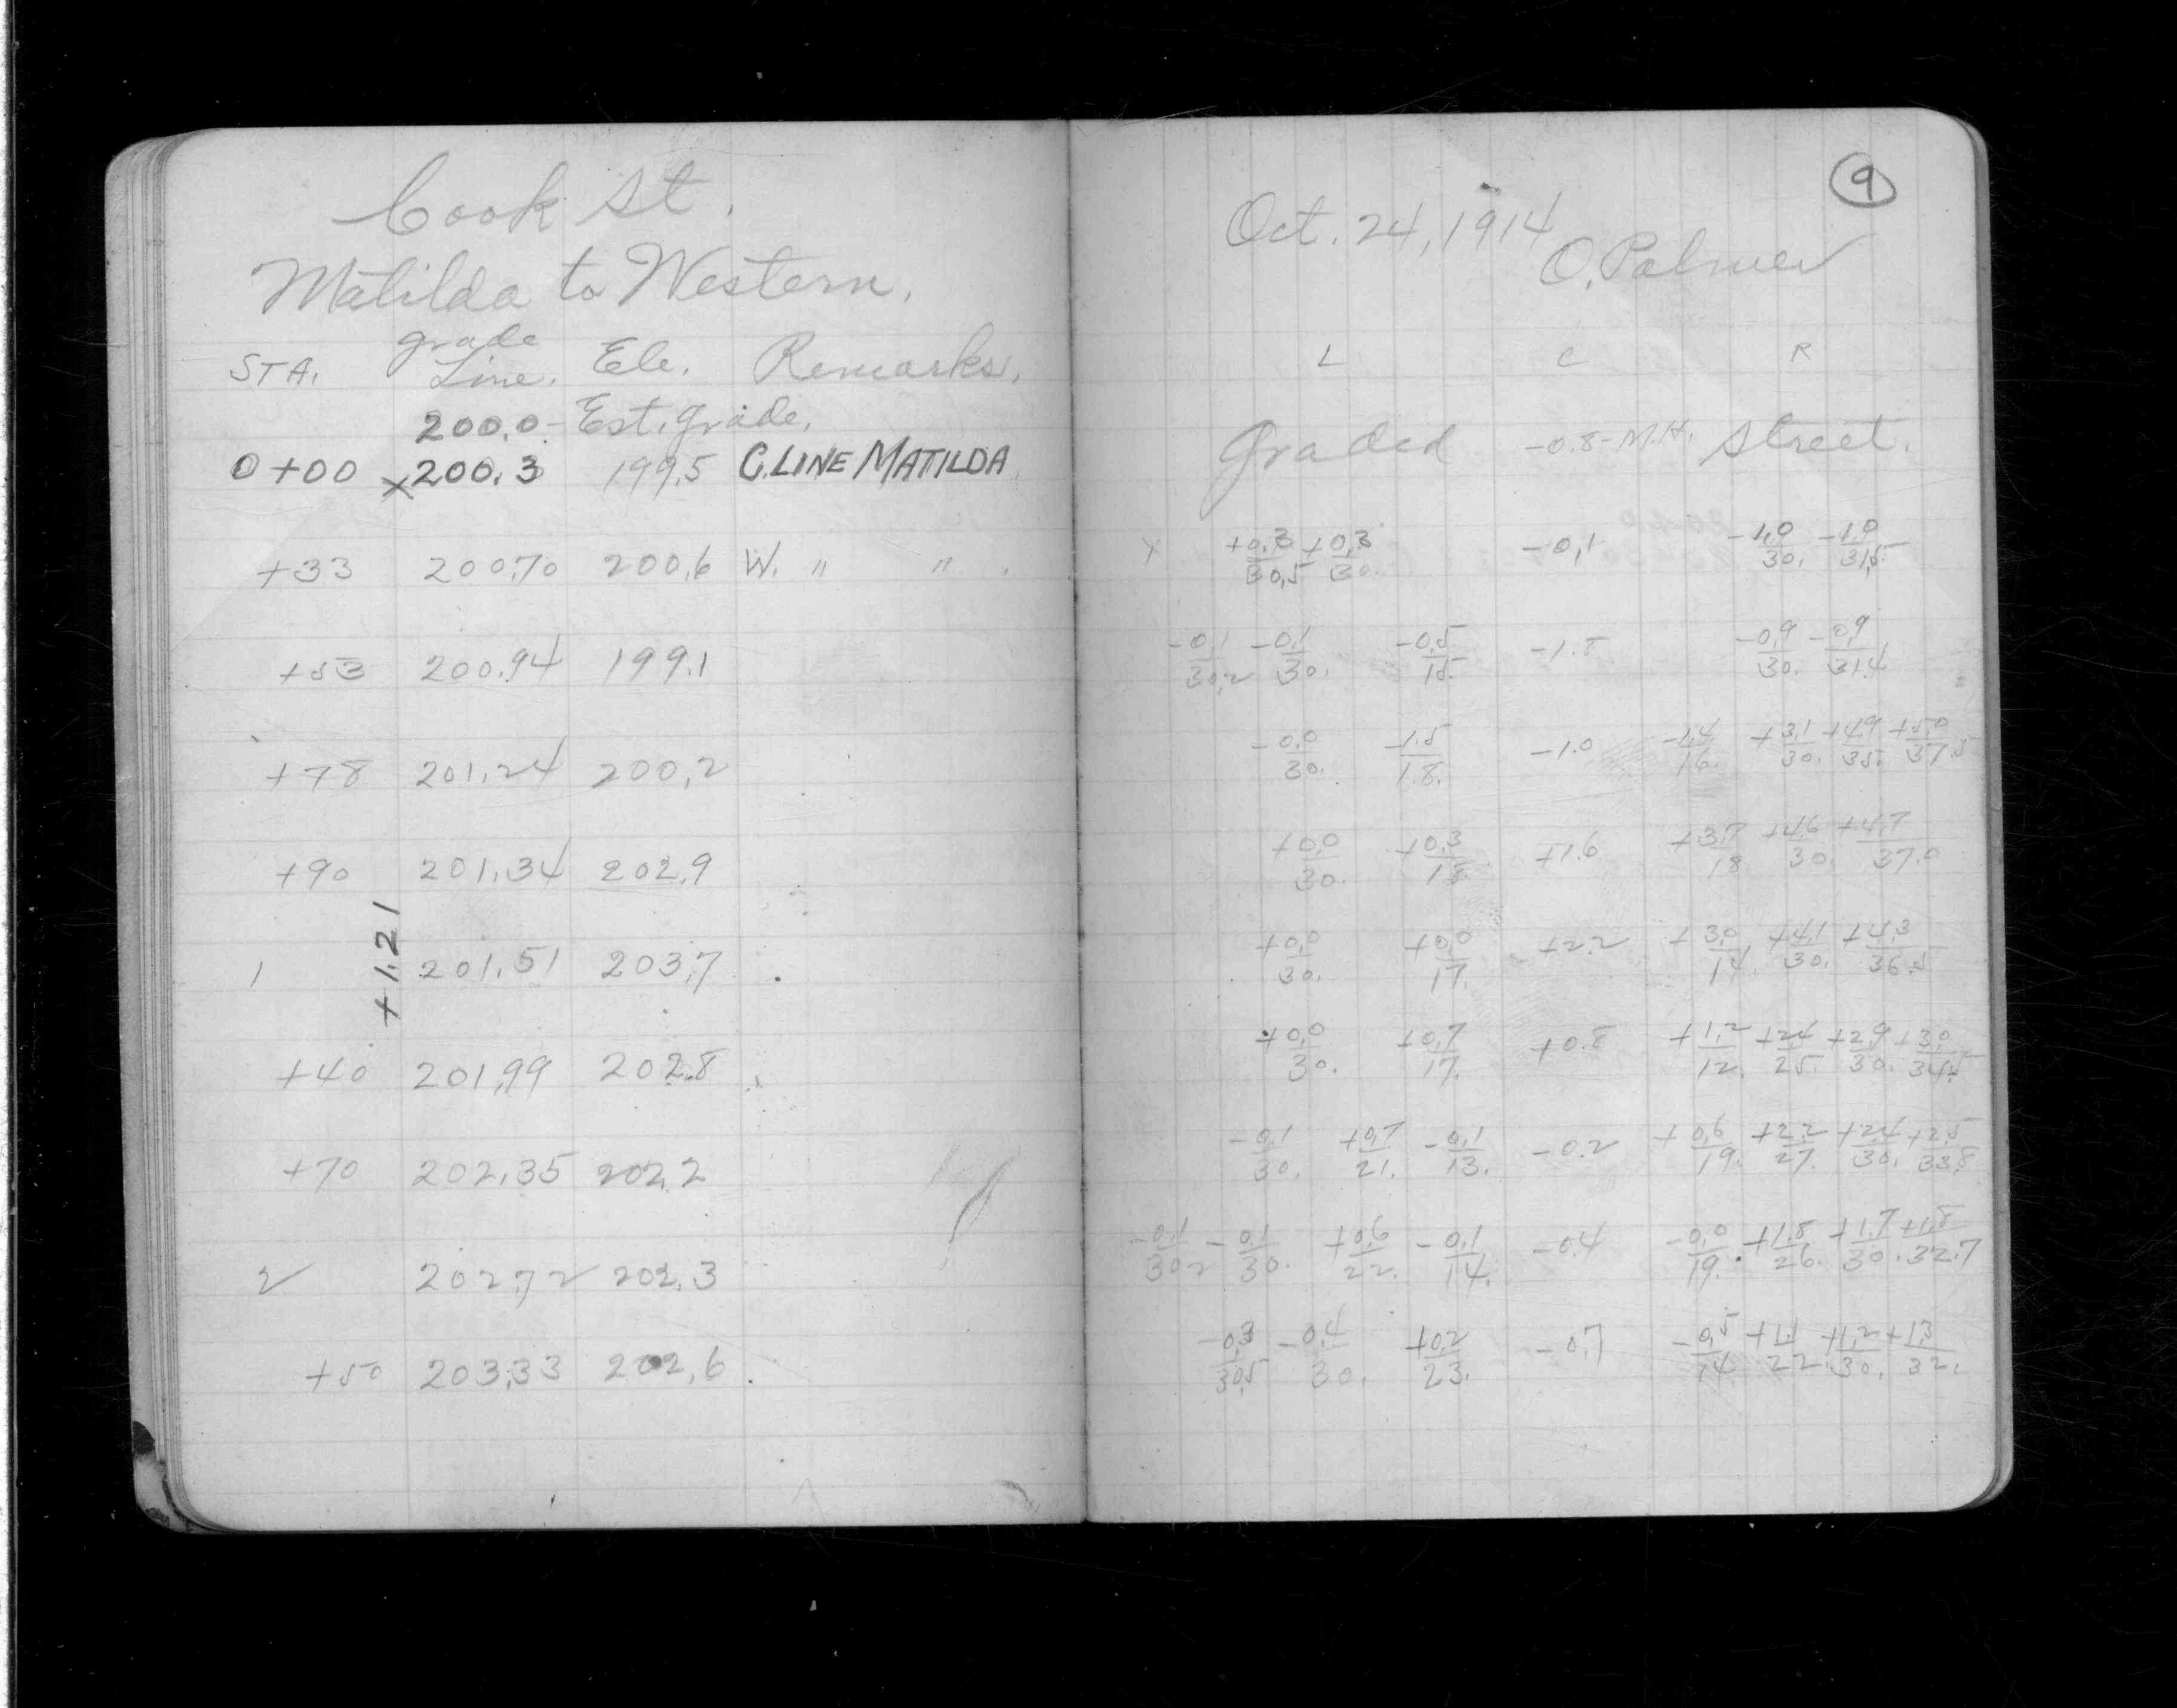 Cook St.
Matilda to Western.
STA. grade Line. Ele. Remarks.
200.0 - Est. grade.
0+00 x200.3 199.5 C.LINE MATILDA
+33 200.70 200.6 W. " " .
+53 200.94 199.1
+78 201.24 200.2
+90 201.34 202.9
+1.21
1 201.51 203.7
+40 201.99 202.8
+70 202.35 202.2
2 202.72 202.3
+50 203.33 202.6
9
Oct. 24, 1914
O. Palmer
L C R
Graded -0.8-M.H. Street.
x +0.3/30.5 +0.3/30. -0.1 -1.0/30. -1.0/31.5
-0.1/30.2 -0.1/30. -0.5/15. -1.8 -0.9/30. -0.9/31.4
-0.0/30. -1.5/18. -1.0 -1.4/16. +3.1/30. +4.9/35. +5.0/37.5
+0.0/30. +0.3/18 +1.6 +3.7/18 +4.6/30. +4.7/37.0
+0.0/30. +0.0/17. +2.2 +3.0/14. +4.1/30. +4.3/36.5
+0.0/30. +0.7/17. +0.8 +1.2/12. +2.4/25. +2.9/30. +3.0/34.5
-0.1/30. +0.7/21. -0.1/13. -0.2 +0.6/19. +2.2/27. +2.4/30. +2.5/33.8
-0.1/30.2 -0.1/30. +0.6/22. -0.1/14. -0.4 -0.0/19. +1.8/26. +1.7/30. +1.8/32.7
-0.3/30.5 -0.4/30. +0.2/23. -0.7 -0.5/14. +1.1/22. +1.2/30. +1.3/32.